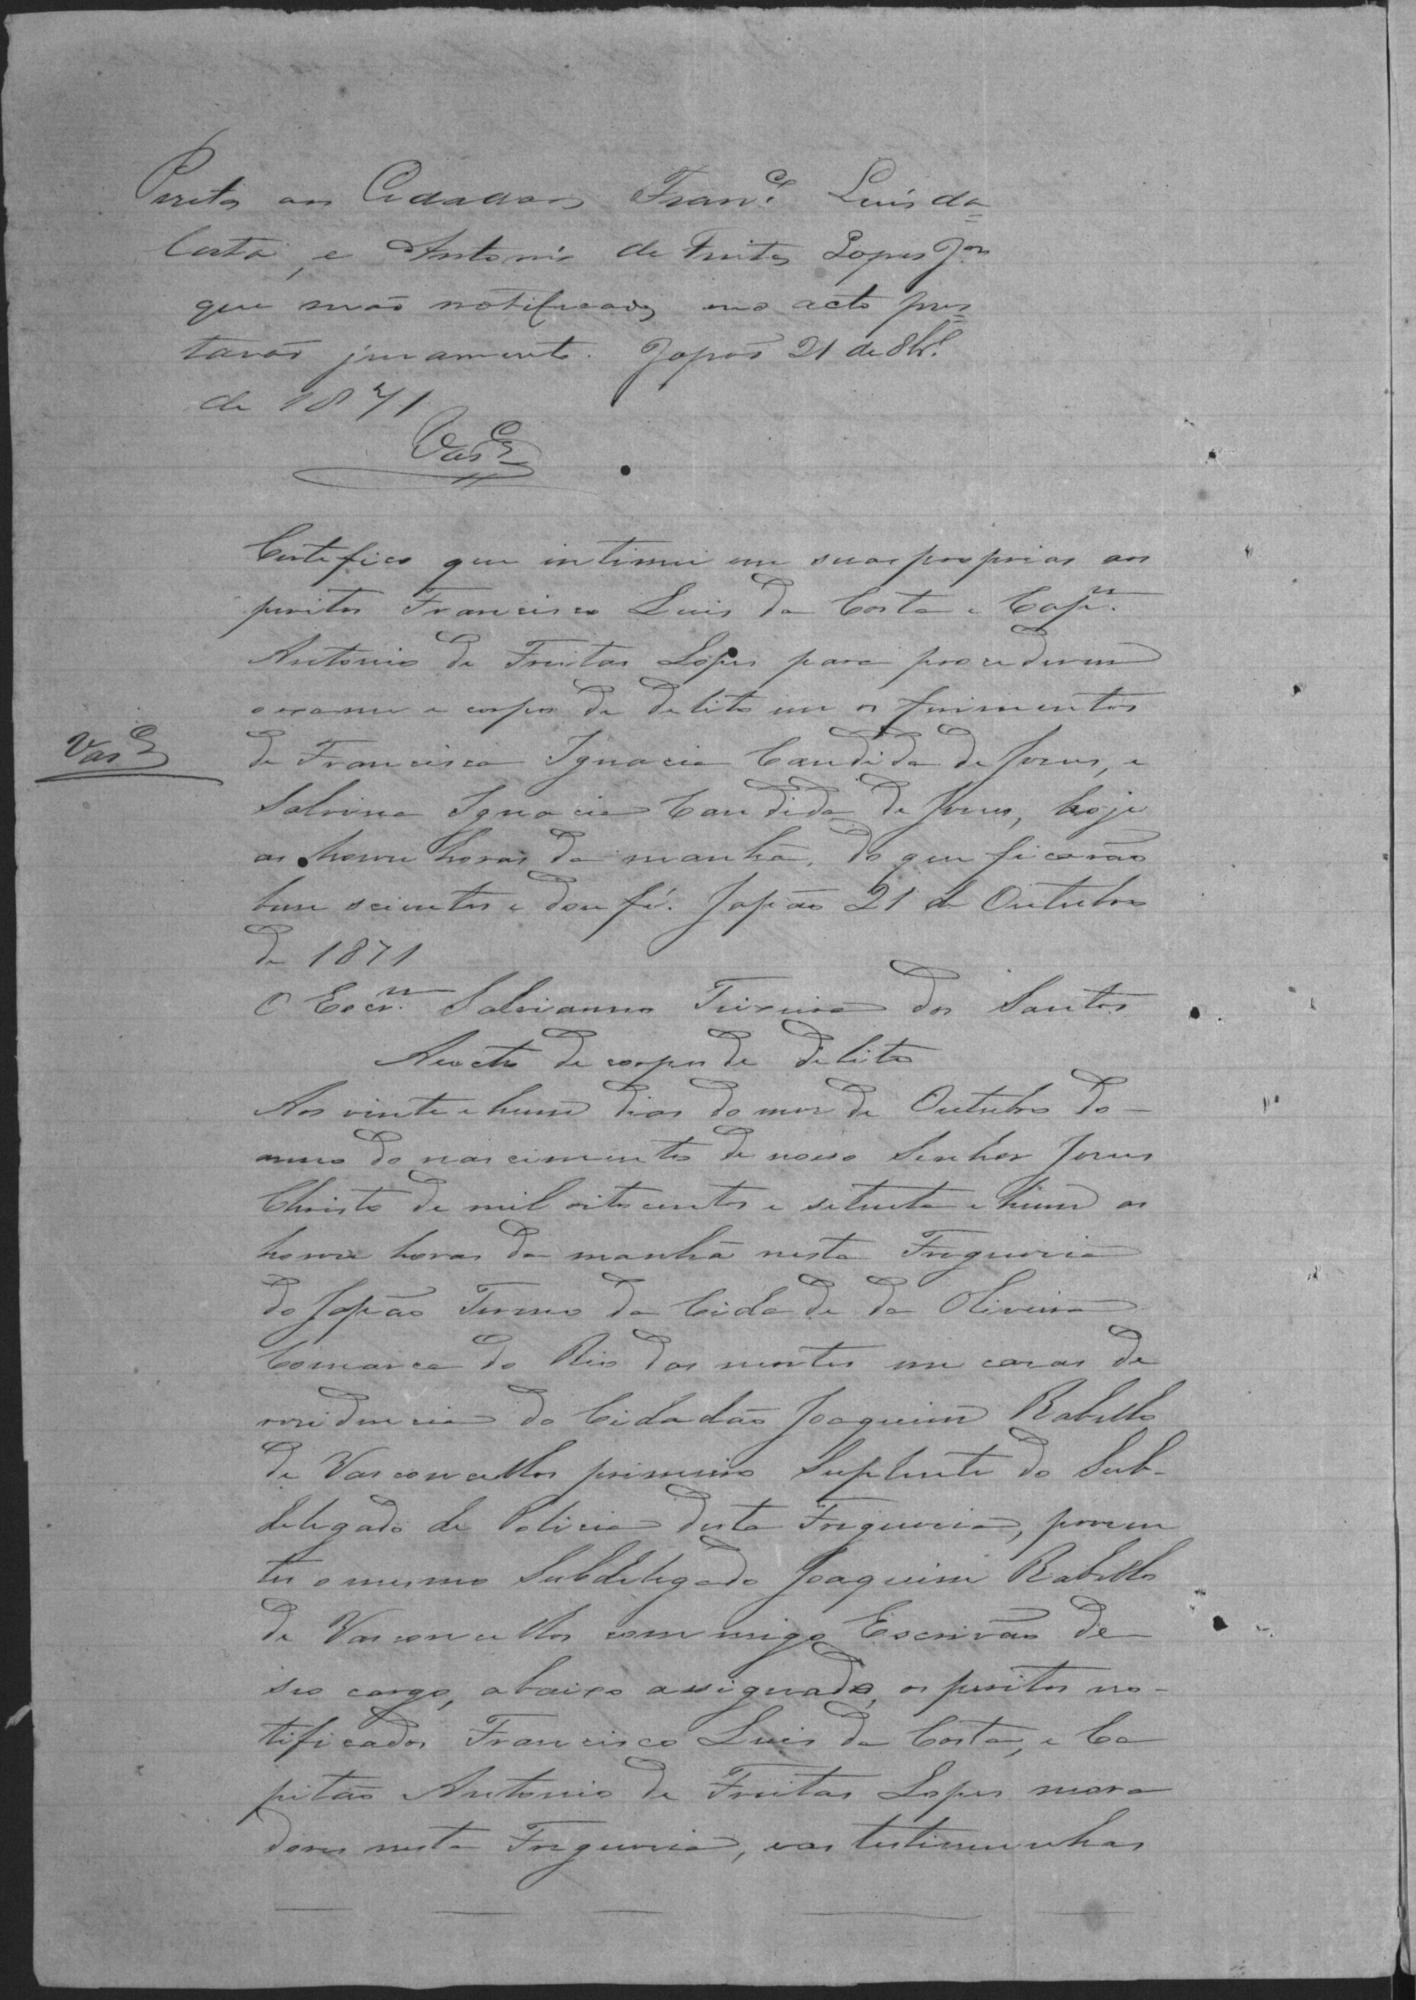 Peritos aos Cidadaos Fran.co Luis da
Costa, e Antonio de Freitas Lopes J.or
que serão notificados e no acto pres=
tarão juramento. Japão 21 de 8br.o
de 1871
Vas.cos
Certifico que intimei em suas proprias aos
peritos Francisco Luis da Costa e Cap.m
Antonio de Freitas Lopes para procederem
o exame e corpo de delito em os ferimentos
Vas.cos
de Francisca Ignacia Candida de Jesus, e
Sabrina Ignacia Candida de Jesus, hoje
as honse horas da manhã, do que ficarão
bem scientes e dou fé. Japão 21 de Outubro
de 1871
O Escr.m Salvianno Teixeira dos Santos
Aucto de corpo de delito
Aos vinte e hum dias do mes de Outubro do
anno do nascimento de nosso Senhor Jesus
Christo de mil oito centos e setenta e hum as
honse horas da manhã nesta Freguesia
do Japão Termo da Cidade da Oliveira
Comarca do Rio das mortes em casas de
residencia do Cidadão Joaquim Rabello
de Vasconcellos primeiro Suplente do Sub-
delegado de Policia desta Freguesia, presen
te o mesmo Subdelegado Joaquim Rabello
de Vasconcellos commigo Escrivão de
seo cargo, abaixo assignado, os peritos no-
tificados Francisco Luis da Costa, e Ca
pitão Antonio de Freitas Lopes mora
dores nesta Freguesia, e as testimunhas